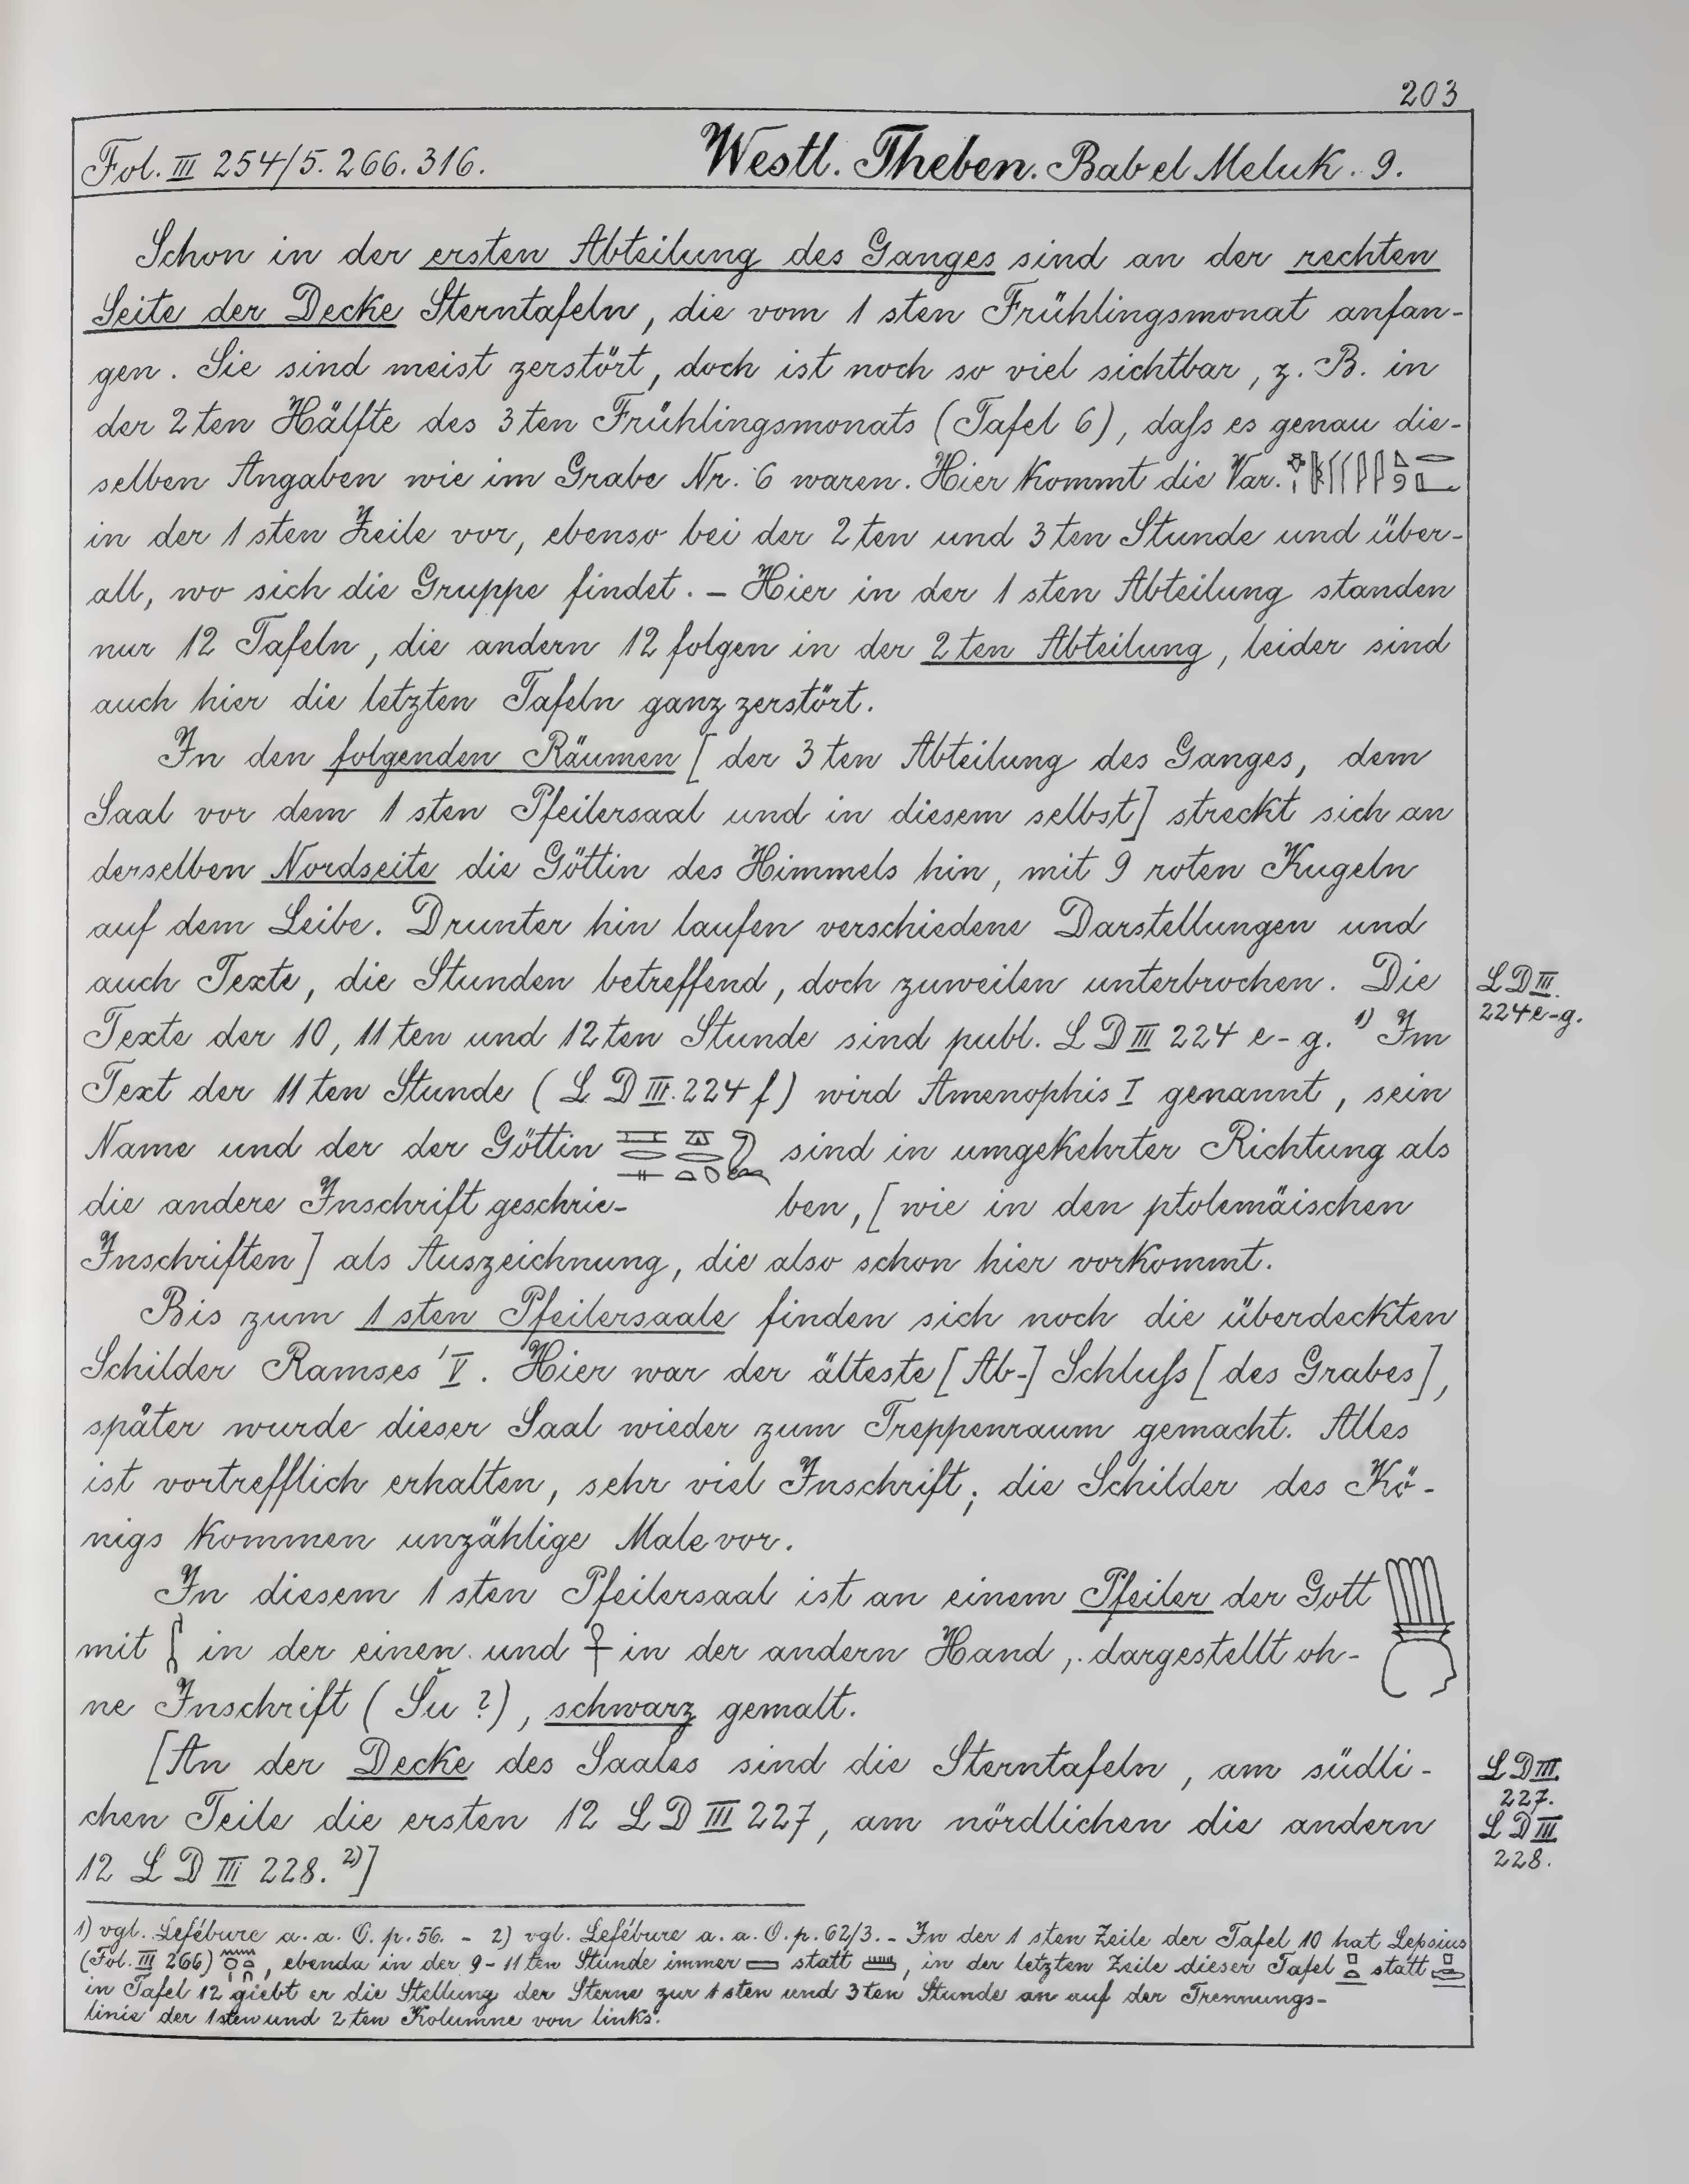 203
Fol. III 254/5. 266. 316. Westl. Theben. Bab el Meluk. 9.
Schon in der ersten Abteilung des Ganges sind an der rechten
Seite der Decke Sterntafeln, die vom 1sten Frühlingsmonat anfan-
gen. Sie sind meist zerstört, doch ist noch so viel sichtbar, z. B. in
der 2ten Hälfte des 3ten Frühlingsmonats (Tafel 6), daſs es genau die-
selben Angaben wie im Grabe Nr. 6 waren. Hier kommt die Var.
in der 1sten Zeile vor, ebenso bei der 2ten und 3ten Stunde und über-
all, wo sich die Gruppe findet. – Hier in der 1sten Abteilung standen
nur 12 Tafeln, die andern 12 folgen in der 2ten Abteilung, leider sind
auch hier die letzten Tafeln ganz zerstört.
In den folgenden Räumen [der 3ten Abteilung des Ganges, dem
Saal vor dem 1sten Pfeilersaal und in diesem selbst] streckt sich an
derselben Nordseite die Göttin des Himmels hin, mit 9 roten Kugeln
auf dem Leibe. Drunter hin laufen verschiedene Darstellungen und
auch Texte, die Stunden betreffend, doch zuweilen unterbrochen. Die
LD III
224 e-g.
Texte der 10, 11ten und 12ten Stunde sind publ. LD III 224 e-g. 1) Im
Text der 11ten Stunde (LD III. 224 f) wird Amenophis I genannt, sein
Name und der der Göttin sind in umgekehrter Richtung als
die andere Inschrift geschrie- ben, [wie in den ptolemäischen
Inschriften] als Auszeichnung, die also schon hier vorkommt.
Bis zum 1sten Pfeilersaale finden sich noch die überdeckten
Schilder Ramses' V. Hier war der älteste [Ab-] Schluſs [des Grabes],
später wurde dieser Saal wieder zum Treppenraum gemacht. Alles
ist vortrefflich erhalten, sehr viel Inschrift; die Schilder des Kö-
nigs kommen unzählige Male vor.
In diesem 1sten Pfeilersaal ist an einem Pfeiler der Gott
mit 𓌀 in der einen und 𓋹 in der andern Hand, dargestellt oh-
ne Inschrift (Šu ?), schwarz gemalt.
[An der Decke des Saales sind die Sterntafeln, am südli-
chen Teile die ersten 12 LD III 227, am nördlichen die andern
12 LD III 228. 2)]
LD III
227.
LD III
228.
1) vgl. Lefébure a. a. O. p. 56. – 2) vgl. Lefébure a. a. O. p. 62/3. – In der 1sten Zeile der Tafel 10 hat Lepsius
(Fol. III 266) , ebenda in der 9-11ten Stunde immer 𓈙 statt 𓏠, in der letzten Zeile dieser Tafel statt
in Tafel 12 giebt er die Stellung der Sterne zur 1sten und 3ten Stunde an auf der Trennungs-
linie der 1sten und 2ten Kolumne von links.